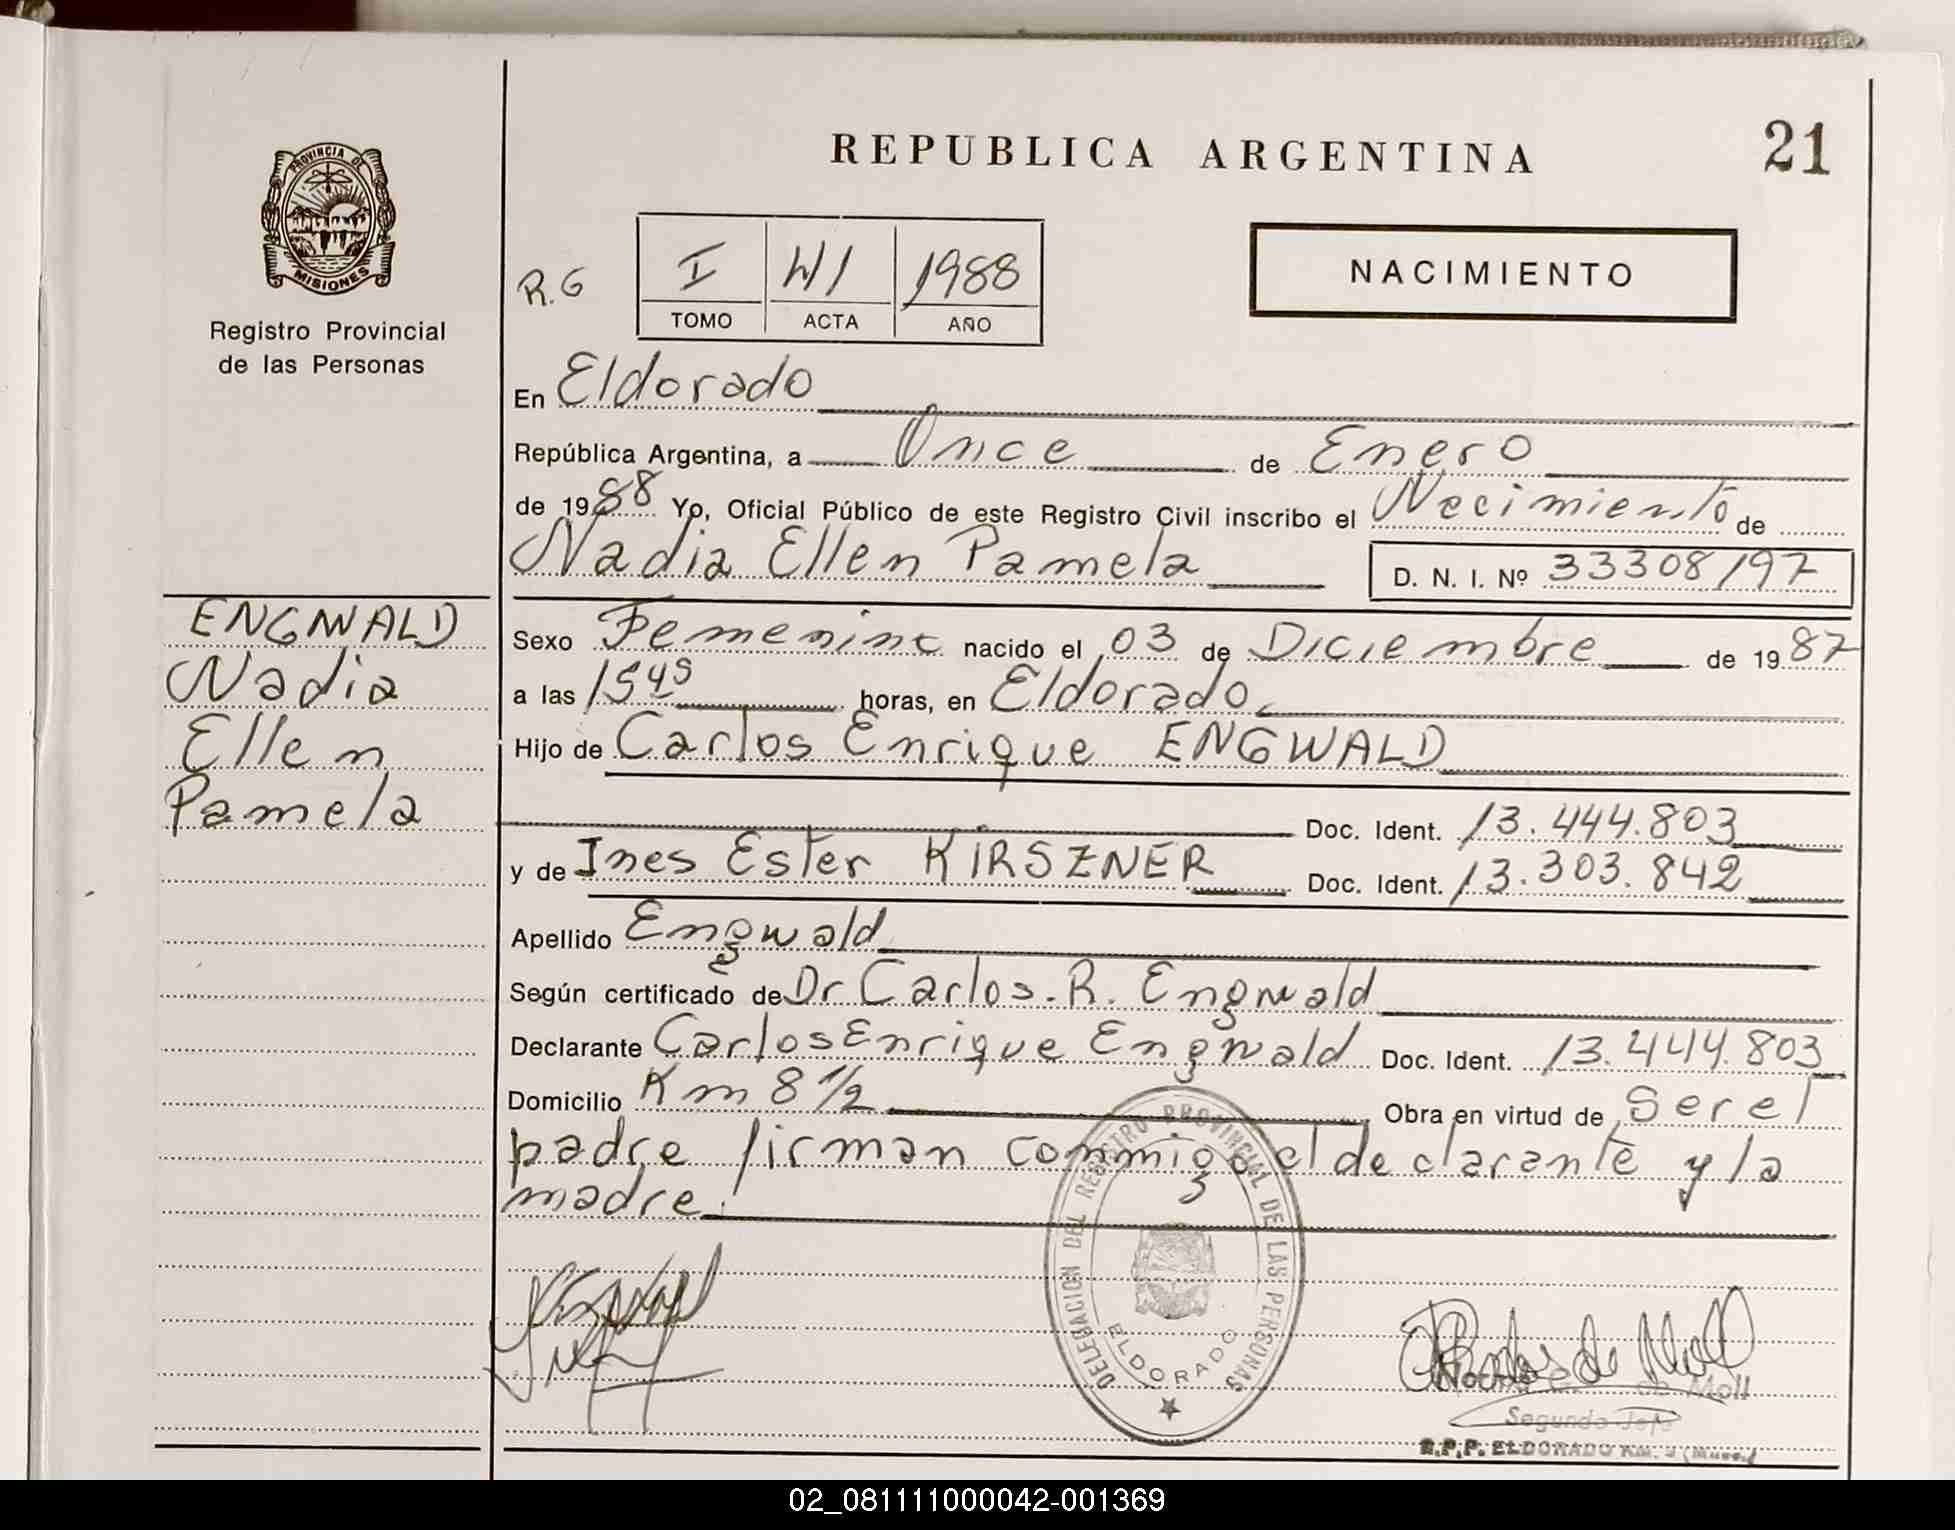 REPUBLICA ARGENTINA
21
PROVINCIA DE
MISIONES
Registro Provincial
de las Personas
R.G
I
1988
TOMO
ACTA
AÑO
NACIMIENTO
En Eldorado
República Argentina, a Once de Enero
de 1988 Yo, Oficial Público de este Registro Civil inscribo el Nacimiento de
Nadia Ellen Pamela
D. N. I. Nº 33308197
ENGWALD
Nadia
Ellen
Pamela
Sexo Femenino nacido el 03 de Diciembre de 1987
a las 1545 horas, en Eldorado
Hijo de Carlos Enrique ENGWALD
Doc. Ident. 13.444.803
y de Ines Ester KIRSZNER Doc. Ident. 13.303.842
Apellido Engwald
Según certificado de Dr Carlos. R. Engwald
Declarante Carlos Enrique Engwald Doc. Ident. 13.444.803
Domicilio Km 8 1/2 Obra en virtud de Ser el
padre firman conmigo el declarante y la
madre.
DELEGACION DEL REGISTRO PROVINCIAL DE LAS PERSONAS
ELDORADO
de Moll
Segundo Jefe
R.P.P. ELDORADO Km.
02_081111000042-001369